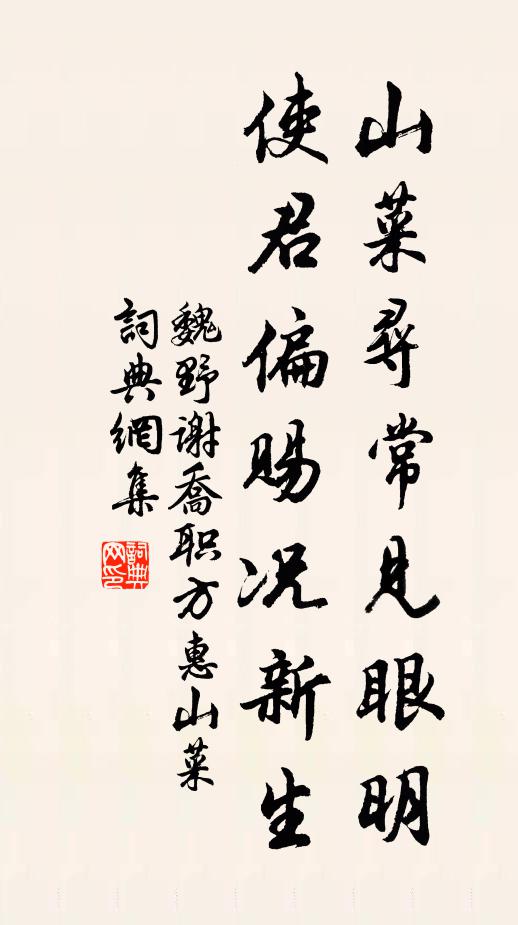 山菜尋常見眼明
使君偏賜况新生
魏野谢喬职方惠山菜
詞典網集
詞典网印